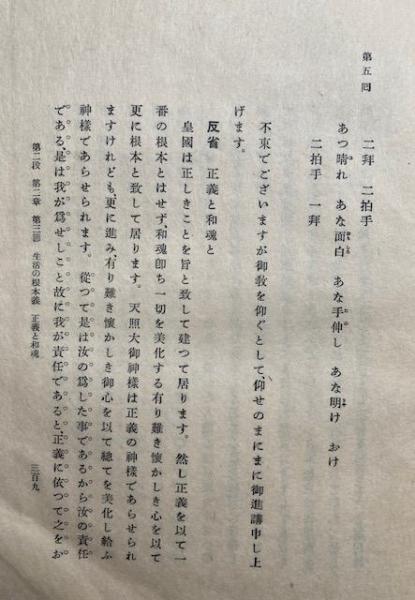 第五問
二拜　二拍手
あつ晴れ　あな面白　あな手伸し　あな明け　おけ
二拍手　一拜
不束でございますが御教を仰ぐとして、仰せのまにまに御進講申し上
げます。
反省　正義と和魂と
皇國は正しきことを旨と致して建つて居ります。然し正義を以て一
番の根本とはせず和魂卽ち一切を美化する有り難き懷かしき心を以て
更に根本と致して居ります。天照大御神樣は正義の神樣であらせられ
ますけれども、更に進み、有り難き懷かしき御心を以て總てを美化し給ふ
神樣であらせられます。從つて是は汝の爲した事であるから汝の責任
である、是は我が爲せしこと故に我が責任であると、正義に依つて之をお
第二段　第二章　第三節　生活の根本義　正義と和魂
三百九